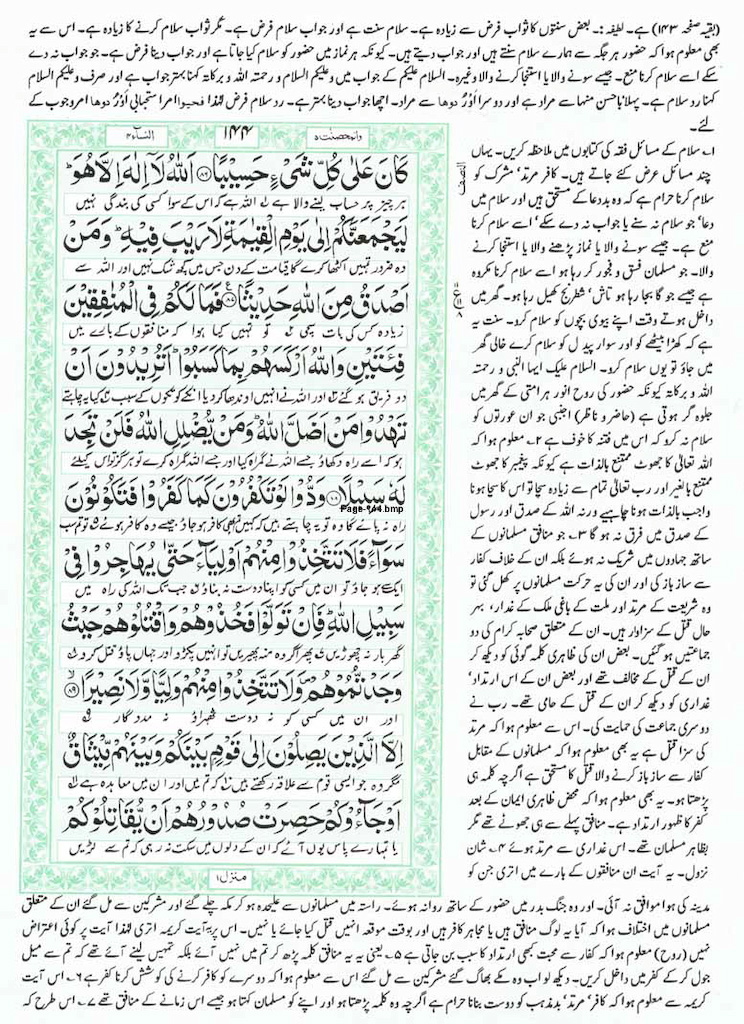 (بقیہ صفحہ ۱۴۳) ہے۔ لطیفہ:۔ بعض سنتوں کا ثواب فرض سے زیادہ ہے۔ سلام سنت ہے اور جواب سلام فرض ہے۔ مگر ثواب سلام کرنے کا زیادہ ہے۔ اس سے یہ
بھی معلوم ہوا کہ حضور ہر جگہ سے ہمارے سلام سنتے ہیں اور جواب دیتے ہیں۔ کیونکہ ہر نماز میں حضور کو سلام کیا جاتا ہے اور جواب دینا فرض ہے۔ جو جواب نہ دے
سکے اسے سلام کرنا منع۔ جیسے سونے والا یا استنجا کرنے والا وغیرہ۔ السلام علیکم کے جواب میں وعلیکم السلام و رحمتہ اللہ و برکاتہ کہنا بہتر جواب ہے اور صرف وعلیکم السلام
کہنا رد سلام ہے۔ پہلا باحسن منہا سے مراد ہے اور دوسرا اَوْ رُدُّوھا سے مراد۔ اچھا جواب دینا بہتر ہے۔ رد سلام فرض لہٰذا فحیوا امر استحبابی اَوْ رُدُّوھا امر وجوب کے
لئے۔
والمحصنت ۵
۱۴۴
النساء ۴
كَانَ عَلٰى كُلِّ شَيْءٍ حَسِيْبًا ۸۶ اَللّٰهُ لَاۤ اِلٰهَ اِلَّا هُوَ ؕ
ہر چیز پر حساب لینے والا ہے اللہ ہے کہ اس کے سوا کسی کی بندگی نہیں
لَيَجْمَعَنَّكُمْ اِلٰى يَوْمِ الْقِيٰمَةِ لَا رَيْبَ فِيْهِ ؕ وَمَنْ
وہ ضرور تمہیں اکٹھا کرے گا قیامت کے دن جس میں کچھ شک نہیں اور اللہ سے
اَصْدَقُ مِنَ اللّٰهِ حَدِيْثًا ۸۷ فَمَا لَكُمْ فِي الْمُنٰفِقِيْنَ
زیادہ کس کی بات سچی تو تمہیں کیا ہوا کہ منافقوں کے بارے میں
فِئَتَيْنِ وَاللّٰهُ اَرْكَسَهُمْ بِمَا كَسَبُوْا ؕ اَتُرِيْدُوْنَ اَنْ
دو فریق ہو گئے اور اللہ نے انہیں اوندھا کر دیا انکے کوتکوں کے سبب کیا یہ چاہتے
تَهْدُوْا مَنْ اَضَلَّ اللّٰهُ ؕ وَمَنْ يُّضْلِلِ اللّٰهُ فَلَنْ تَجِدَ
ہو کہ اسے راہ دکھاؤ جسے اللہ نے گمراہ کیا اور جسے اللہ گمراہ کرے تو ہرگز تو اس کیلئے
لَهٗ سَبِيْلًا ۸۸ وَدُّوْا لَوْ تَكْفُرُوْنَ كَمَا كَفَرُوْا فَتَكُوْنُوْنَ
Page-144.bmp
راہ نہ پائے گا وہ تو یہ چاہتے ہیں کہ کہیں تم بھی کافر ہو جاؤ جیسے وہ کافر ہوئے تو تم سب
سَوَآءً فَلَا تَتَّخِذُوْا مِنْهُمْ اَوْلِيَآءَ حَتّٰى يُهَاجِرُوْا فِيْ
ایک سے ہو جاؤ تو ان میں کسی کو اپنا دوست نہ بناؤ جب تک اللہ کی راہ میں
سَبِيْلِ اللّٰهِ ؕ فَاِنْ تَوَلَّوْا فَخُذُوْهُمْ وَاقْتُلُوْهُمْ حَيْثُ
گھر بار نہ چھوڑیں پھر اگر وہ منہ پھیریں تو انہیں پکڑو اور جہاں پاؤ قتل کرو
وَجَدْتُّمُوْهُمْ ۪ وَلَا تَتَّخِذُوْا مِنْهُمْ وَلِيًّا وَّلَا نَصِيْرًا ۸۹
اور ان میں کسی کو نہ دوست ٹھہراؤ نہ مددگار
اِلَّا الَّذِيْنَ يَصِلُوْنَ اِلٰى قَوْمٍۭ بَيْنَكُمْ وَبَيْنَهُمْ مِّيْثَاقٌ
مگر وہ جو ایسی قوم سے علاقہ رکھتے ہیں کہ تم میں اور ان میں معاہدہ ہے
اَوْ جَآءُوْكُمْ حَصِرَتْ صُدُوْرُهُمْ اَنْ يُّقَاتِلُوْكُمْ
یا تمہارے پاس یوں آئے کہ ان کے دلوں میں سکت نہ رہی کہ تم سے لڑیں
منزل ۱
النصف
ع
۱۱
۸
۱۔ سلام کے مسائل فقہ کی کتابوں میں ملاحظہ کریں۔ یہاں
چند مسائل عرض کئے جاتے ہیں۔ کافر مرتد مشرک کو
سلام کرنا حرام ہے کہ وہ بددعا کے مستحق ہیں اور سلام میں
دعا جو سلام نہ سنے یا جواب نہ دے سکے اسے سلام کرنا
منع ہے۔ جیسے سونے والا یا نماز پڑھنے والا یا استنجا کرنے
والا۔ جو مسلمان فسق و فجور کر رہا ہو اسے سلام کرنا مکروہ
ہے جیسے جو گا بجا رہا ہو تاش، شطرنج کھیل رہا ہو۔ گھر میں
داخل ہوتے وقت اپنے بیوی بچوں کو سلام کرو۔ سنت یہ
ہے کہ کھڑا بیٹھے کو اور سوار پیدل کو سلام کرے خالی گھر
میں جاؤ تو یوں سلام کرو۔ السلام علیک ایہا النبی و رحمتہ
اللہ و برکاتہ کیونکہ حضور کی روح انور ہر امتی کے گھر میں
جلوہ گر ہوتی ہے (حاضر و ناظر) اجنبی جوان عورتوں کو
سلام نہ کرو کہ اس میں فتنہ کا خوف ہے ۲۔ معلوم ہوا کہ
اللہ تعالیٰ کا جھوٹ ممتنع بالذات ہے کیونکہ پیغمبر کا جھوٹ
ممتنع بالغیر اور رب تعالیٰ تمام سے زیادہ سچا تو اس کا سچا ہونا
واجب بالذات ہونا چاہیے ورنہ اللہ کے صدق اور رسول
کے صدق میں فرق نہ ہو گا ۳۔ جو منافق مسلمانوں کے
ساتھ جہادوں میں شریک نہ ہوئے بلکہ ان کے خلاف کفار
سے ساز باز کی اور ان کی یہ حرکت مسلمانوں پر کھل گئی تو
وہ شریعت کے مرتد اور ملت کے باغی ملک کے غدار، بہر
حال قتل کے سزاوار ہیں۔ ان کے متعلق صحابہ کرام کی دو
جماعتیں ہو گئیں۔ بعض ان کی ظاہری کلمہ گوئی کو دیکھ کر
ان کے قتل کے مخالف تھے اور بعض ان کے اس ارتداد،
غداری کو دیکھ کر ان کے قتل کے حامی تھے۔ رب نے
دوسری جماعت کی حمایت کی۔ اس سے معلوم ہوا کہ مرتد
کی سزا قتل ہے یہ بھی معلوم ہوا کہ مسلمانوں کے مقابل
کفار سے ساز باز کرنے والا قتل کا مستحق ہے اگرچہ کلمہ ہی
پڑھتا ہو۔ یہ بھی معلوم ہوا کہ محض ظاہری ایمان کے بعد
کفر کا ظہور ارتداد ہے۔ منافق پہلے سے ہی جھوٹے تھے مگر
بظاہر مسلمان تھے۔ اس غداری سے مرتد ہوئے ۴۔ شان
نزول۔ یہ آیت ان منافقوں کے بارے میں اتری جن کو
مدینہ کی ہوا موافق نہ آئی۔ اور وہ جنگ بدر میں حضور کے ساتھ روانہ ہوئے۔ راستہ میں مسلمانوں سے علیحدہ ہو کر مکہ چلے گئے اور مشرکین سے مل گئے ان کے متعلق
مسلمانوں میں اختلاف ہوا کہ آیا یہ لوگ منافق ہیں یا مجاہر کافر ہیں اور بوقت موقعہ انہیں قتل کیا جائے یا نہیں۔ اس پر یہ آیت کریمہ اتری لہٰذا آیت پر کوئی اعتراض
نہیں (روح) معلوم ہوا کہ کفار سے محبت کبھی ارتداد کا سبب بن جاتی ہے ۵۔ یعنی یہ منافق کلمہ پڑھ کر تم میں نہیں آئے بلکہ تمہیں لینے آئے تھے کہ تم سے میل
جول کر کے کفر میں داخل کریں۔ دیکھ لو اب وہ مکے بھاگ گئے مشرکین سے مل گئے اس سے معلوم ہوا کہ دوسرے کو کافر کرنے کی کوشش کرنا کفر ہے ۶۔ اس آیت
کریمہ سے معلوم ہوا کہ کافر، مرتد، بدمذہب کو دوست بنانا حرام ہے اگرچہ وہ کلمہ پڑھتا ہو اور اپنے کو مسلمان کہتا ہو جیسے اس زمانے کے منافق تھے ۷۔ اس طرح کہ